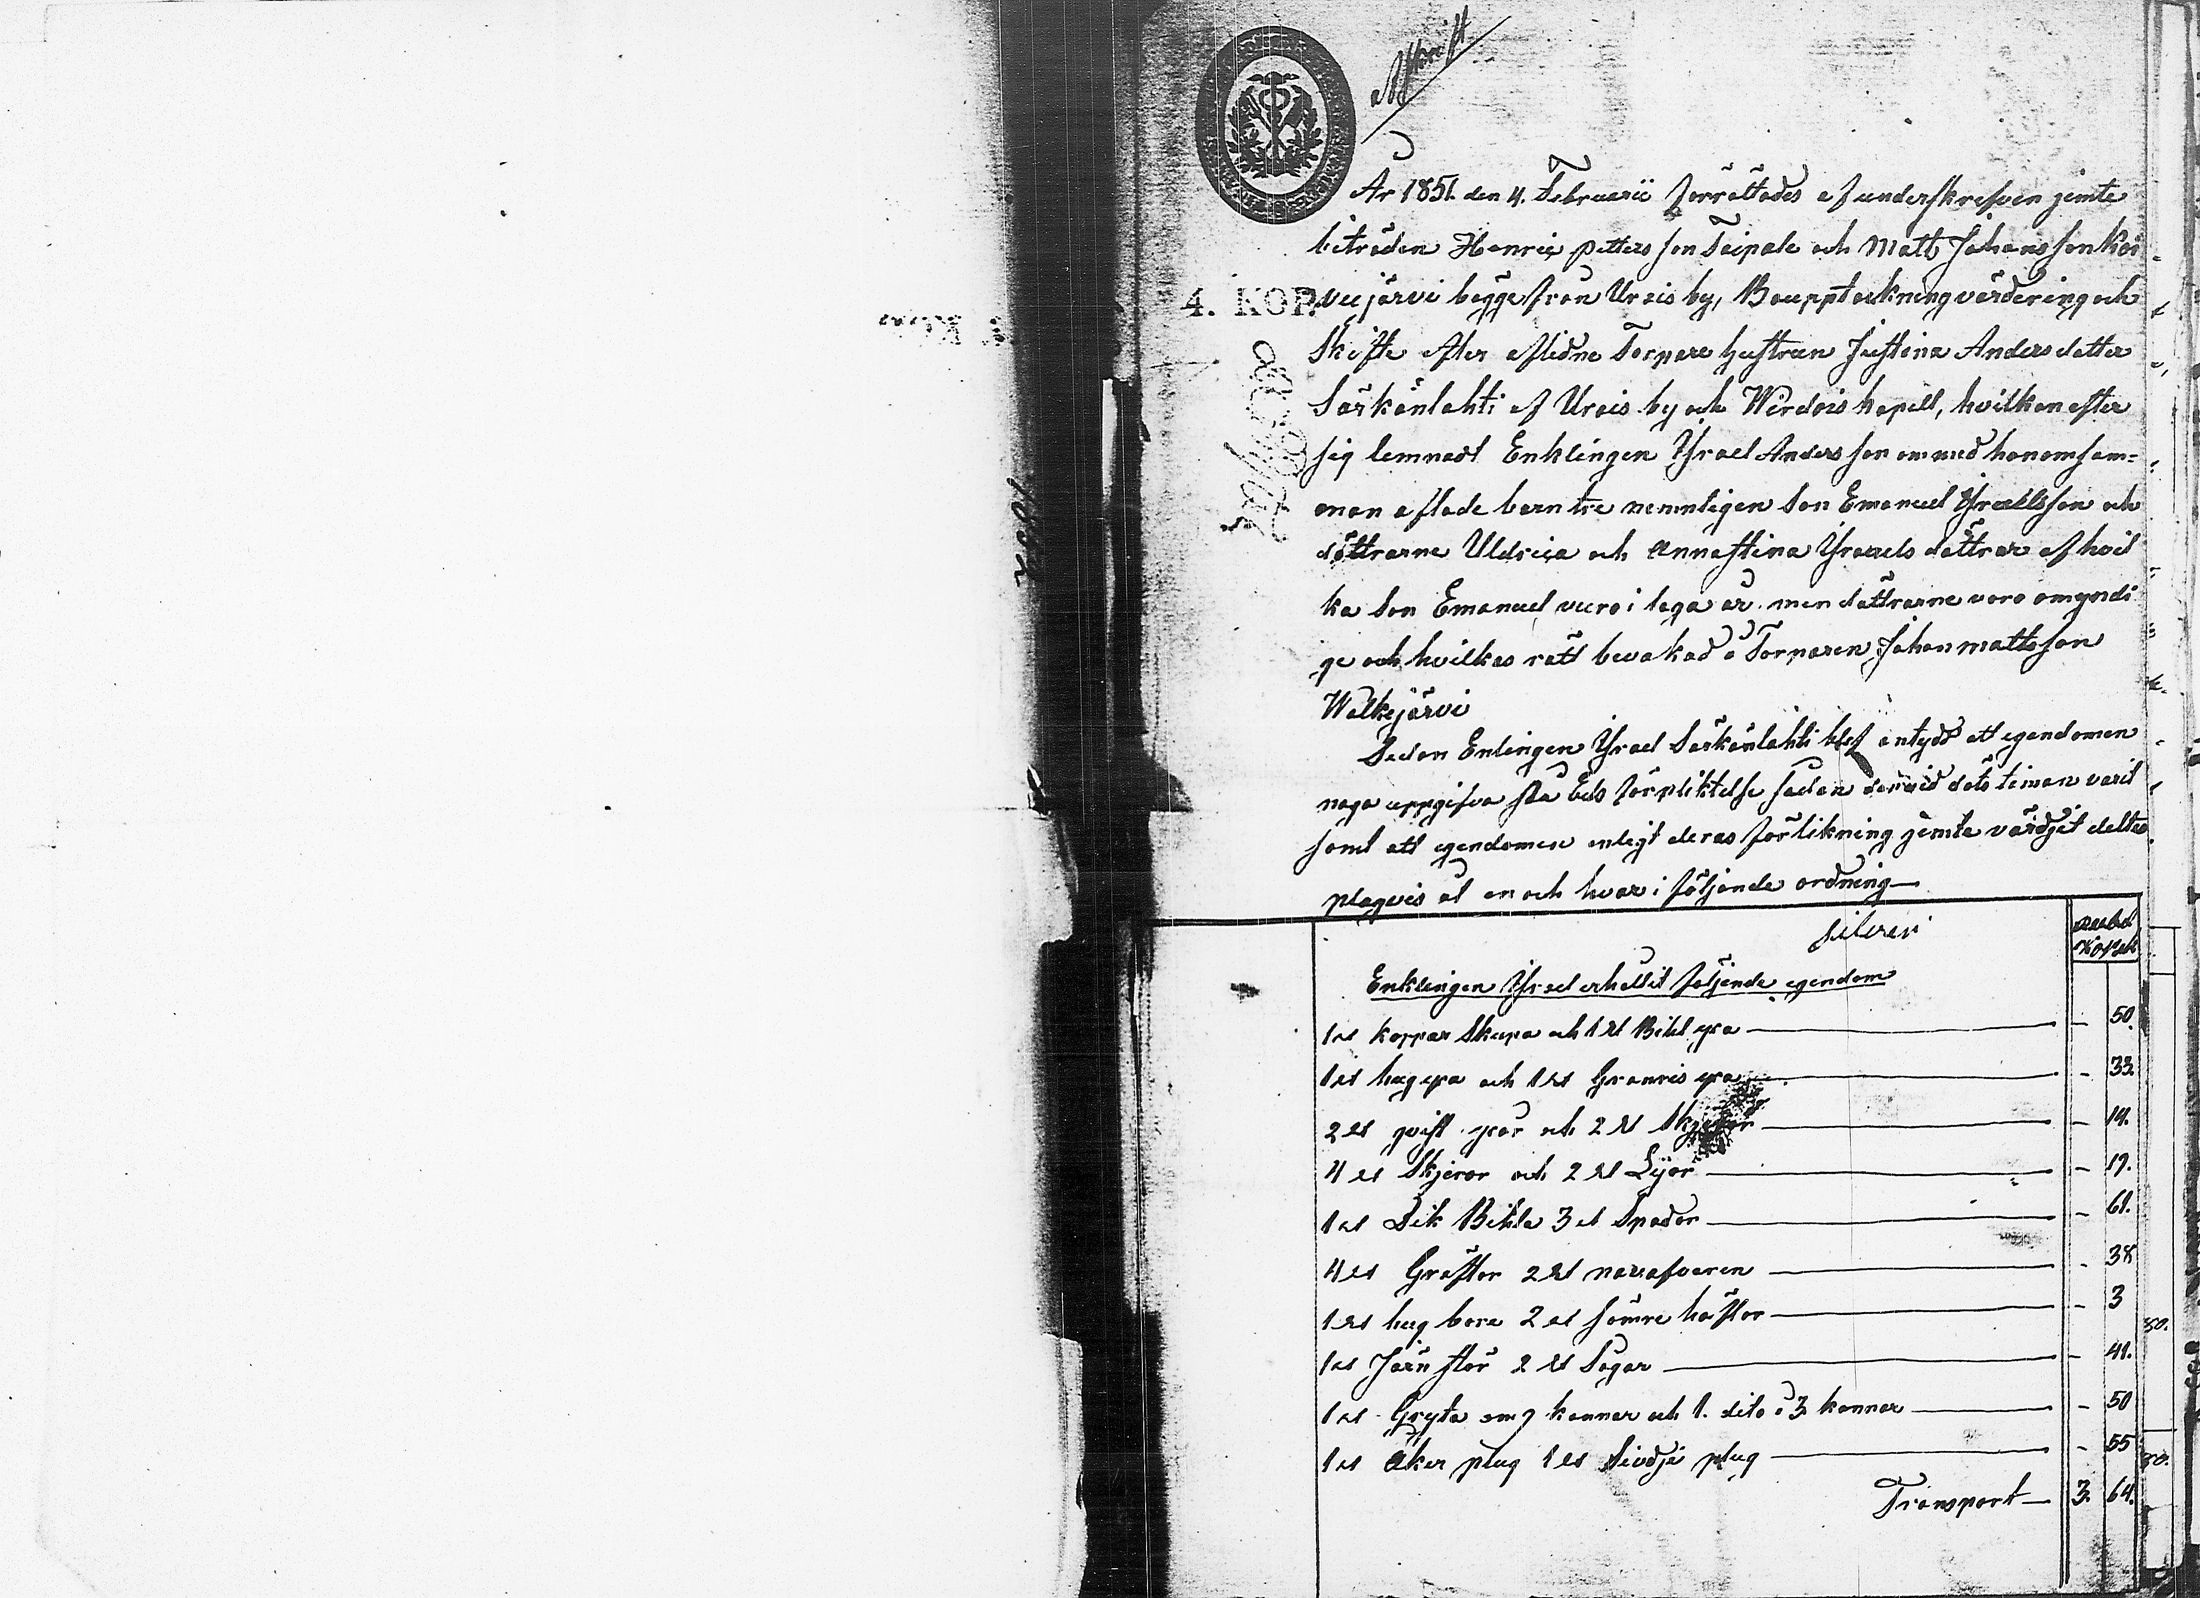 Afskrift
År 1851. den 4. Februarii förrättades af underskrefven jemte
biträden Henric petters son Teipale och Matts Johansson Koi
4. KOP.
vujärvi begge från Urais by, Boupptekning värdering och
Skifte efter aflidne Torpare hustrun Justina Andersdotter
Särkänlahti af Urais by och Wirdois kapell, hvilken efter
sig lemnadt Enklingen Ysrael Andersson om med honom sam-
man aflade barn tre nemnligen Son Emanuel Ysraelsson och
döttrarne Uldrica och Annastina Ysraels döttrar af hvil
ka Son Emanuel vuro i laga år. men döttrarne voro omyndi
ge och hvilkas rätt bevakad å Torparen Johan mattsson
Walkejärvi
Sedan Enlingen Ysrael Särkänlahti blef antydd att egendomen
noga uppgifva sta Eds förpliktelse sadan dervid döts timan varit
samt att egendomen enligt deras förlikning jemte värdjet deltes
plagvis at en och hvar i följande ordning—
silver
Rubel
Kopek
Enklingen Ysrael erhallit följande egendom
1 st koppar Skupa och 1 st Bihl yxa — - 50.
1 st hug yxa och 1 st Granris yxa — - 33.
2 st qvist yxor och 2 st — - 14.
4 st Skjeror och 2 st Lijor — - 19.
1 st Dik Bihla 3 st Spador — - 61.
4 st Gräftor 2 st navafvaren — - 38
1 st hug bora 2 st sömre häftor — - 3
1 st Järn stör 2 st Sagar — - 41.
1 st Gryta om 7 kannor och 1. dito å 3 kannor — - 50
1 st Åker plug 1 st Sivdje plug — - 55
Transport — 3. 64.